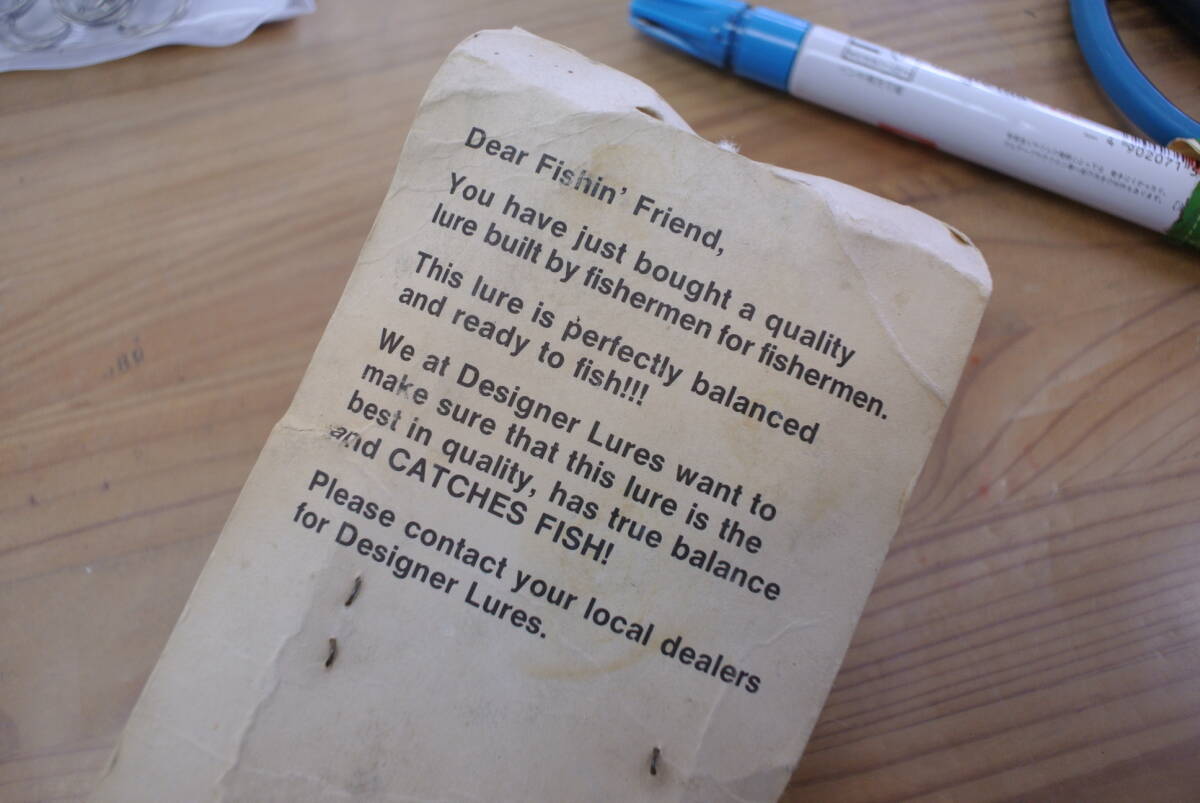 Dear Fishin' Friend,
You have just bought a quality
lure built by fishermen for fishermen.
This lure is perfectly balanced
and ready to fish!!!
We at Designer Lures want to
make sure that this lure is the
best in quality, has true balance
and CATCHES FISH!
Please contact your local dealers
for Designer Lures.
4 902071